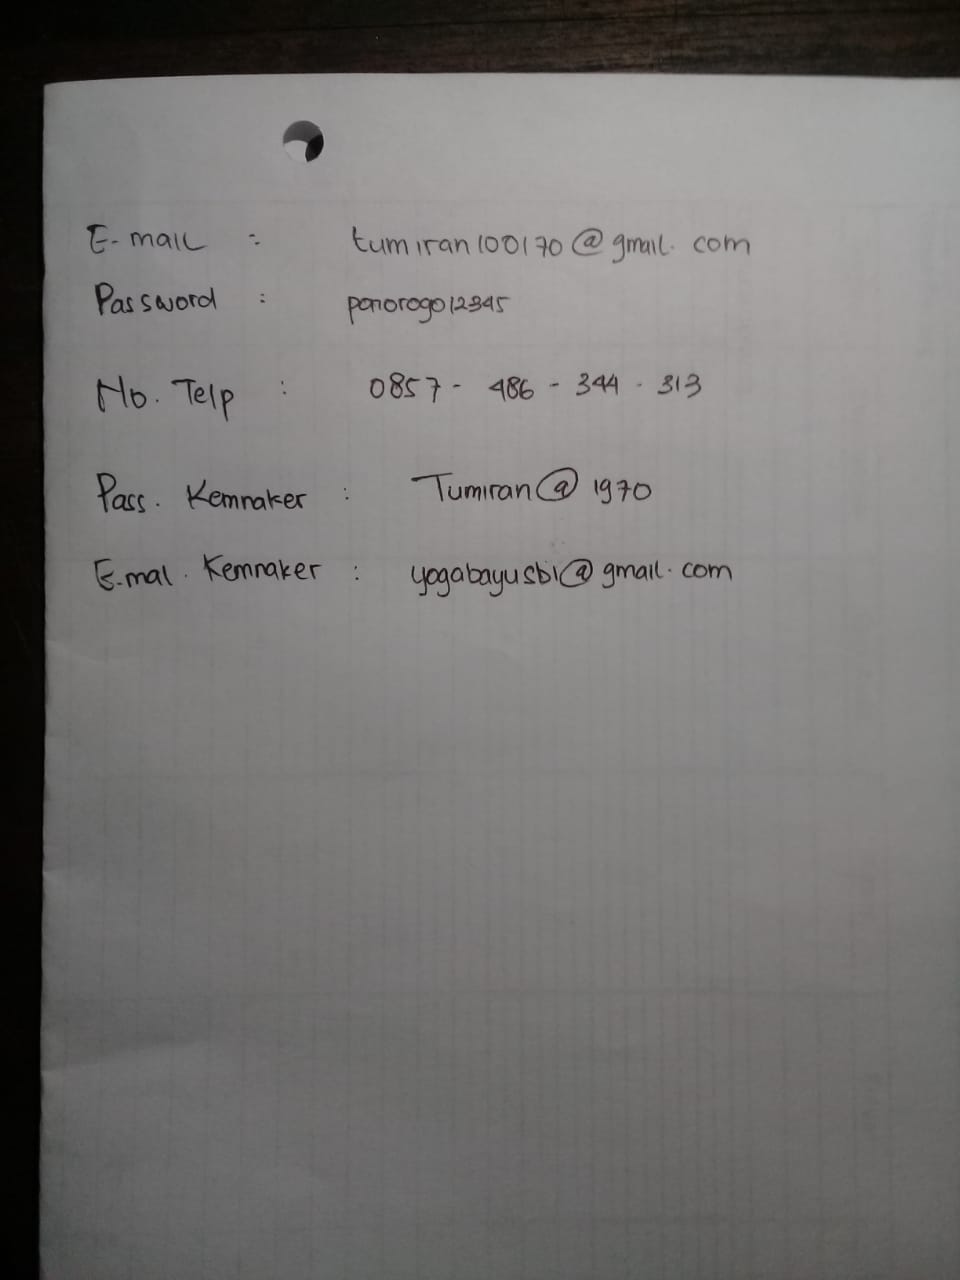 E-mail : tumiran100170@gmail.com
Password : ponorogo12345
No. Telp : 0857 - 486 - 344 - 313
Pass. Kemnaker : Tumiran@1970
E-mal. Kemnaker : yogabayusbi@gmail.com